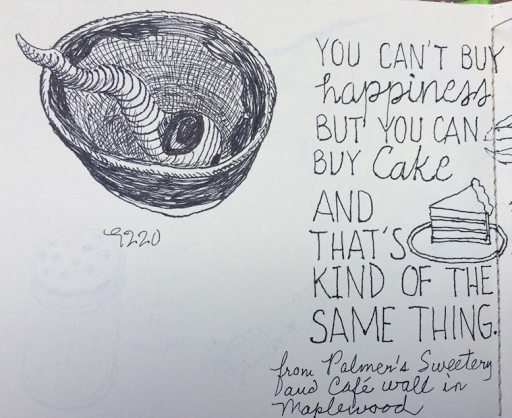 YOU CAN'T BUY
happiness
BUT YOU CAN
BUY Cake
AND
THAT'S
KIND OF THE
SAME THING.
from Palmer's Sweetery
and Café wall in
Maplewood